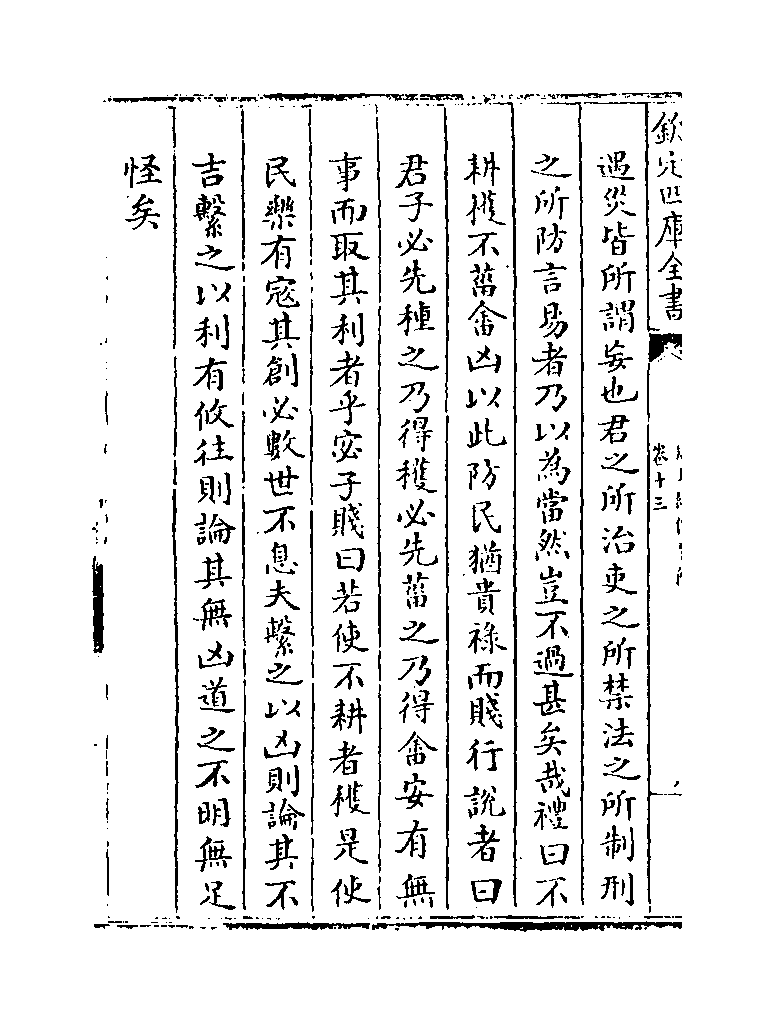 欽定四庫全書
卷十三
遇災皆所謂妄也君之所治吏之所禁法之所制刑
之所防言易者乃以為當然豈不過甚矣哉禮曰不
耕穫不菑畬凶以此防民猶貴祿而賤行說者曰
君子必先種之乃得穫必先菑之乃得畬安有無
事而取其利者乎宓子賤曰若使不耕者穫是使
民樂有寇其創必數世不息夫繫之以凶則論其不
吉繫之以利有攸往則論其無凶道之不明無足
怪矣